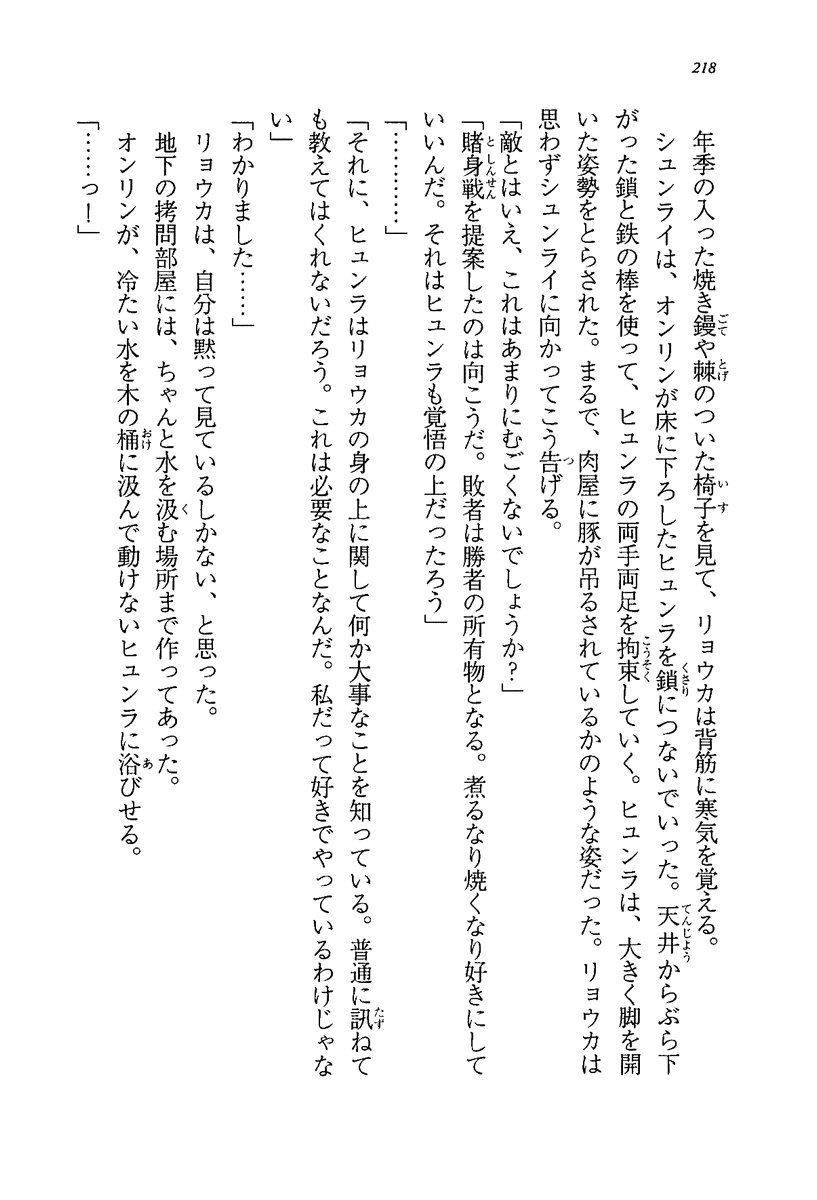 218
年季の入った焼き鏝や棘のついた椅子を見て、リョウカは背筋に寒気を覚える。
シュンライは、オンリンが床に下ろしたヒュンラを鎖につないでいった。天井からぶら下
がった鎖と鉄の棒を使って、ヒュンラの両手両足を拘束していく。ヒュンラは、大きく脚を開
いた姿勢をとらされた。まるで、肉屋に豚が吊るされているかのような姿だった。リョウカは
思わずシュンライに向かってこう告げる。
「敵とはいえ、これはあまりにむごくないでしょうか?」
「賭身戦を提案したのは向こうだ。敗者は勝者の所有物となる。煮るなり焼くなり好きにして
いいんだ。それはヒュンラも覚悟の上だったろう」
「…………」
「それに、ヒュンラはリョウカの身の上に関して何か大事なことを知っている。普通に訊ねて
も教えてはくれないだろう。これは必要なことなんだ。私だって好きでやっているわけじゃな
い」
「わかりました……」
リョウカは、自分は黙って見ているしかない、と思った。
地下の拷問部屋には、ちゃんと水を汲む場所まで作ってあった。
オンリンが、冷たい水を木の桶に汲んで動けないヒュンラに浴びせる。
「……っ!」